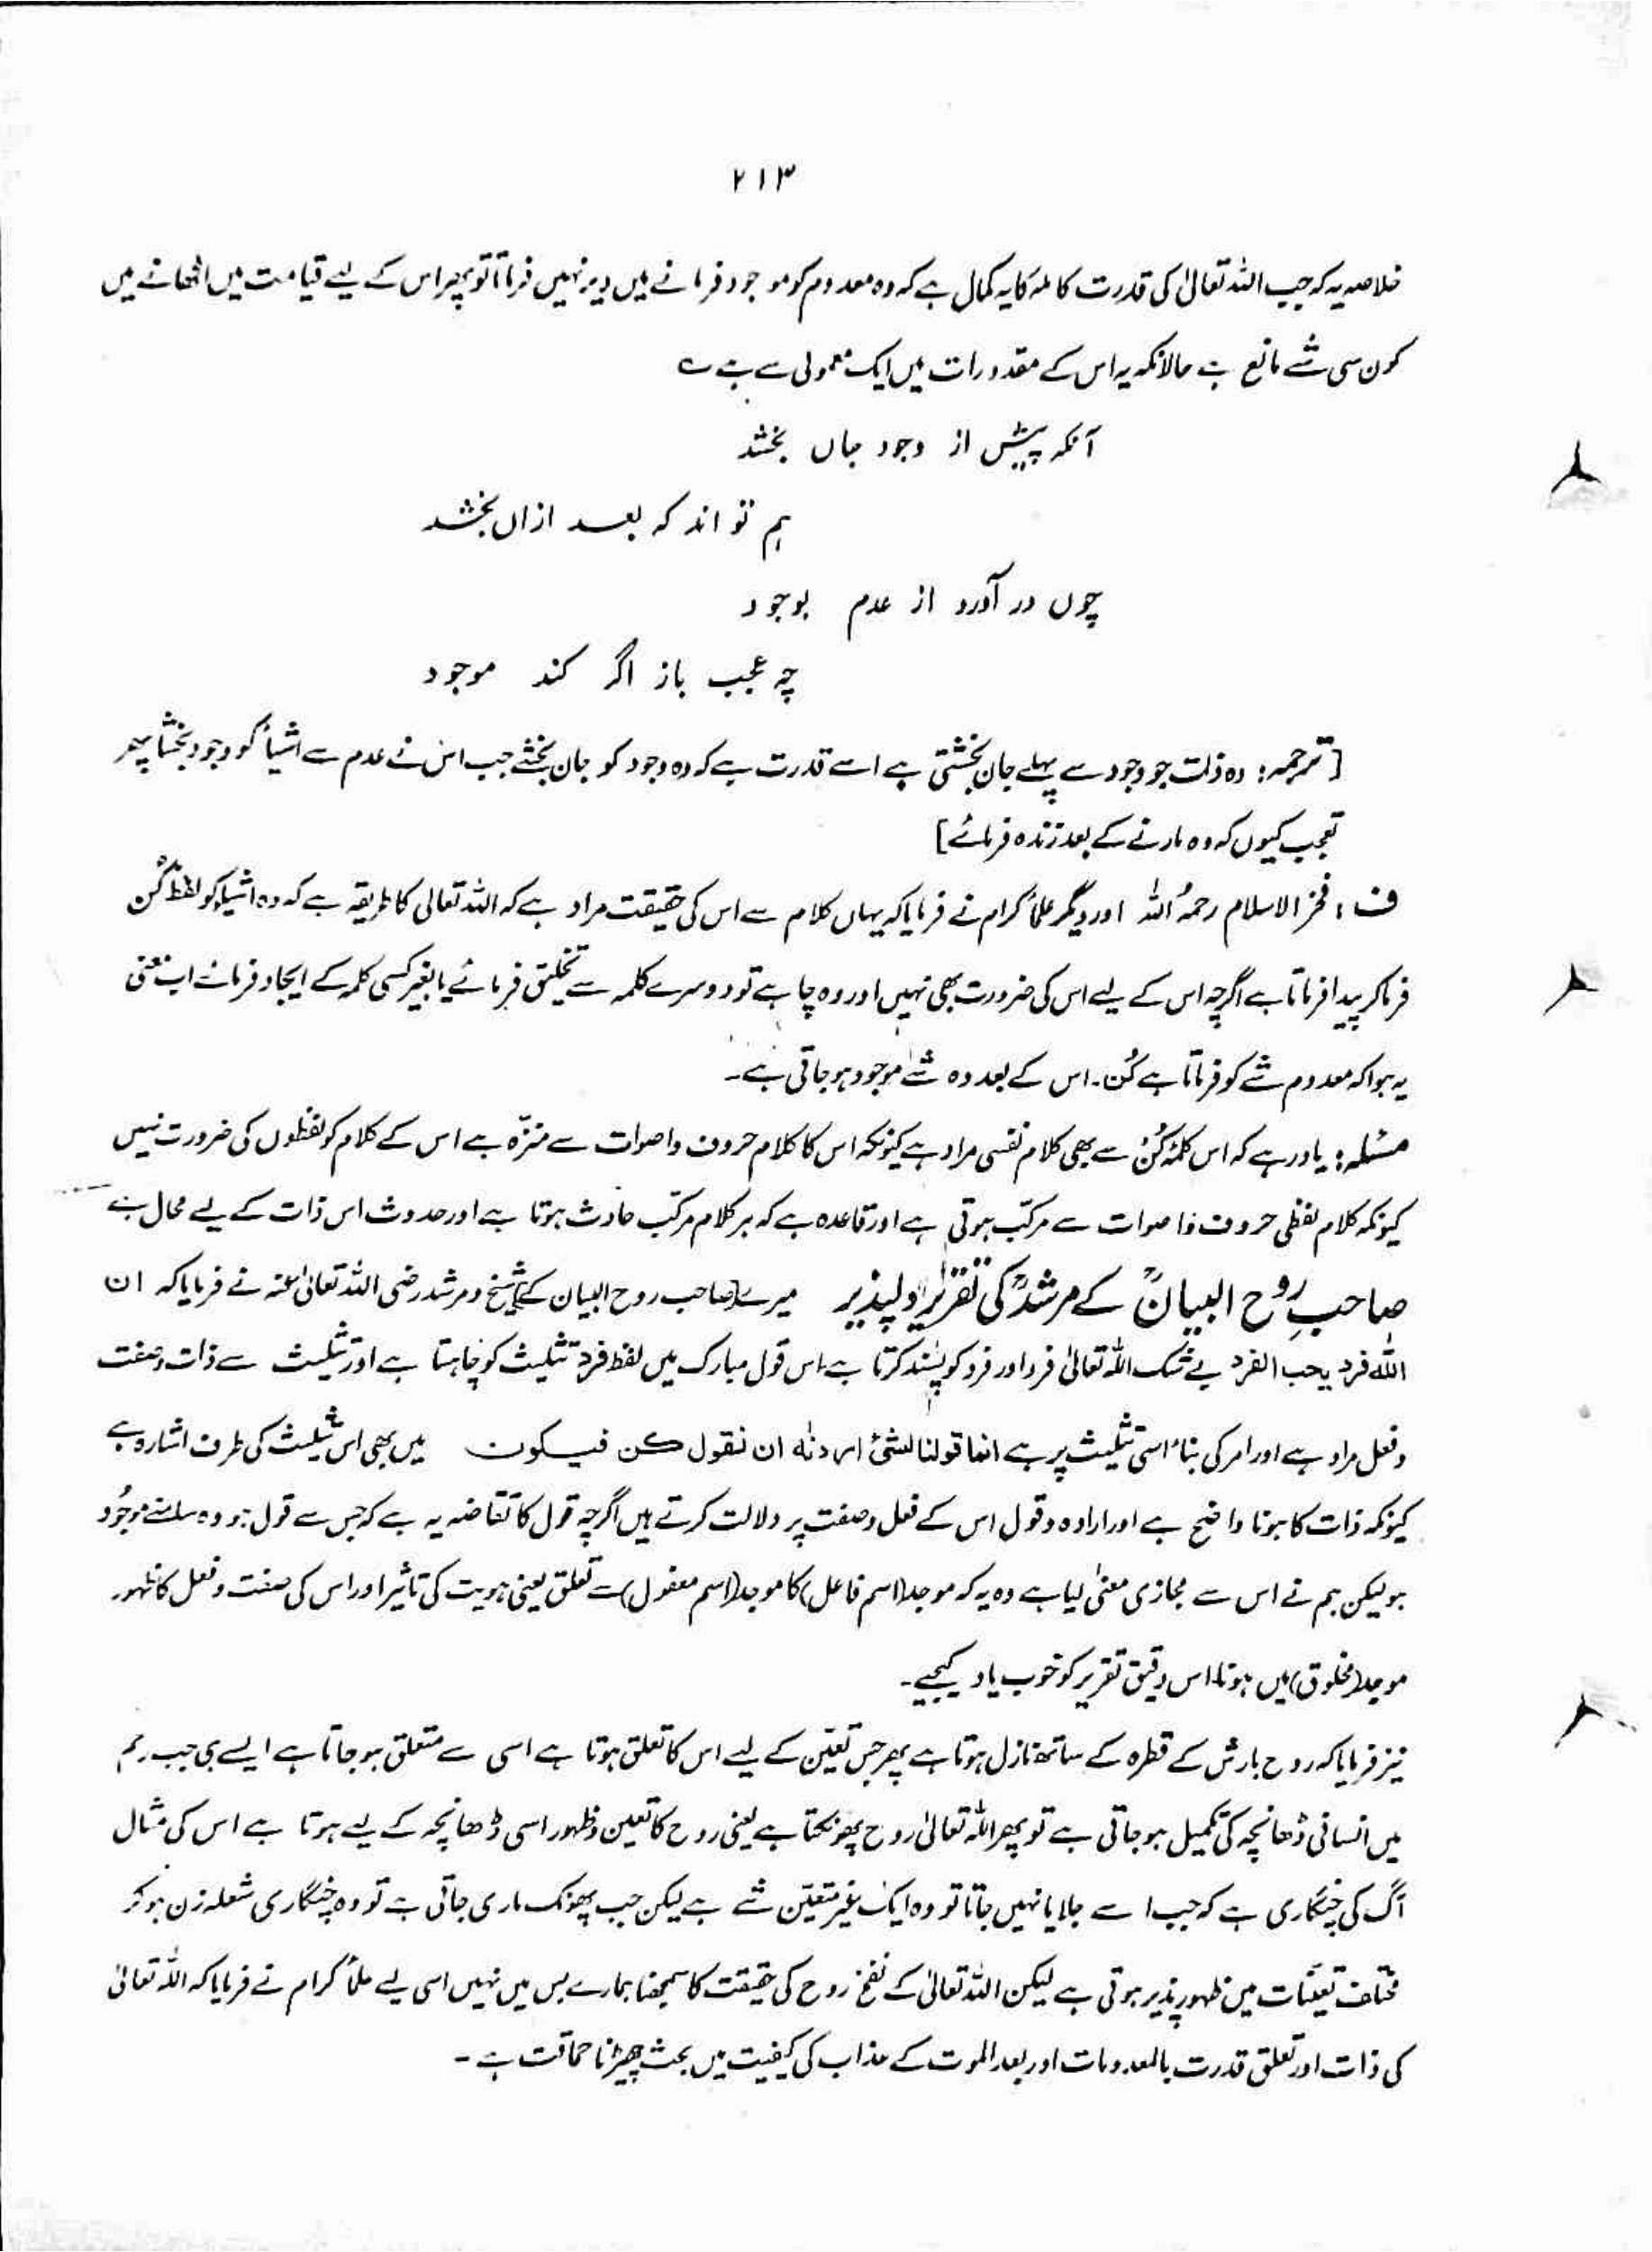 ۲۱۳
خلاصہ یہ کہ جب اللہ تعالیٰ کی قدرت کاملہ کا یہ کمال ہے کہ وہ معدوم کو موجود فرمانے میں دیر نہیں فرماتا تو پھر اس کے لیے قیامت میں اٹھانے میں
کون سی شے مانع ہے حالانکہ یہ اس کے مقدورات میں ایک معمولی سے ہے ؎
آنکہ پیش از وجود جاں بخشد
ہم تواند کہ بعد ازاں بخشد
چوں در آورد از عدم بوجود
چہ عجب باز اگر کند موجود
[ترجمہ: وہ ذات جو وجود سے پہلے جان بخشتی ہے اسے قدرت ہے کہ وہ وجود کو جان بخشے جب اس نے عدم سے اشیأ کو وجود بخشا پھر
تعجب کیوں کہ وہ مارنے کے بعد زندہ فرمائے]
ف : فخر الاسلام رحمہُ اللہ اور دیگر علمأ کرام نے فرمایا کہ یہاں کلام سے اس کی حقیقت مراد ہے کہ اللہ تعالیٰ کا طریقہ ہے کہ وہ اشیاء کو لفظ کُن
فرما کر پیدا فرماتا ہے اگرچہ اس کے لیے اس کی ضرورت بھی نہیں اور وہ چاہے تو دوسرے کلمہ سے تخلیق فرمائے یا بغیر کسی کلمہ کے ایجاد فرمائے اب معنی
یہ ہوا کہ معدوم شے کو فرماتا ہے کُن۔ اس کے بعد وہ شے موجود ہو جاتی ہے۔
مسئلہ: یاد رہے کہ اس کلمۂ کُن سے بھی کلام نفسی مراد ہے کیونکہ اس کا کلام حروف و اصوات سے منزّہ ہے اس کے کلام کو لفظوں کی ضرورت نہیں
کیونکہ کلام لفظی حروف و اصوات سے مرکّب ہوتی ہے اور قاعدہ ہے کہ ہر کلام مرکّب حادث ہوتا ہے اور حدوث اس ذات کے لیے محال ہے
صاحبِ روح البیانؒ کے مرشدؒ کی تقریر دلپذیر میرے (صاحب روح البیان کے) شیخ و مرشد رضی اللہ تعالیٰ عنہ نے فرمایا کہ ان
اللّٰہ فرد یحب الفرد بے شک اللہ تعالیٰ فرد اور فرد کو پسند کرتا ہے اس قول مبارک میں لفظ فرد تثلیث کو چاہتا ہے اور تثلیث سے ذات و صفت
و فعل مراد ہے اور امر کی بناء اسی تثلیث پر ہے انما قولنا لشئ اذا اردنٰہ ان نقول کن فیکون میں بھی اس تثلیث کی طرف اشارہ ہے
کیونکہ ذات کا ہونا واضح ہے اور ارادہ و قول اس کے فعل و صفت پر دلالت کرتے ہیں اگرچہ قول کا تقاضہ یہ ہے کہ جس سے قول ہو وہ سامنے موجُود
ہو لیکن ہم نے اس سے مجازی معنیٰ لیا ہے وہ یہ کہ موجد (اسم فاعل) کا موجد (اسم مفعول) سے تعلق یعنی ہویت کی تاثیر اور اس کی صفت و فعل کا ظہور
موجد (مخلوق) میں ہونا۔ اس دقیق تقریر کو خوب یاد کیجیے۔
نیز فرمایا کہ روح بارش کے قطرہ کے ساتھ نازل ہوتا ہے پھر جس تعیّن کے لیے اس کا تعلق ہوتا ہے اسی سے متعلق ہو جاتا ہے ایسے ہی جب رحم
میں انسانی ڈھانچہ کی تکمیل ہو جاتی ہے تو پھر اللہ تعالیٰ روح پھونکتا ہے یعنی روح کا تعین و ظہور اسی ڈھانچہ کے لیے ہوتا ہے اس کی مثال
آگ کی چنگاری ہے کہ جب اسے جلایا نہیں جاتا تو وہ ایک غیر متعیّن شے ہے لیکن جب پھونک ماری جاتی ہے تو وہ چنگاری شعلہ زن ہو کر
مختلف تعیّنات میں ظہور پذیر ہوتی ہے لیکن اللہ تعالیٰ کے نفخ روح کی حقیقت کا سمجھنا ہمارے بس میں نہیں اسی لیے علمأ کرام نے فرمایا کہ اللہ تعالیٰ
کی ذات اور تعلق قدرت بالمعدومات اور بعد الموت کے عذاب کی کیفیت میں بحث چھیڑنا حماقت ہے۔